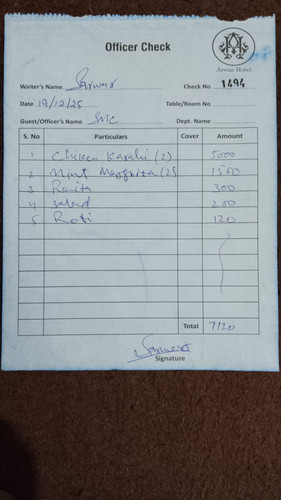 Officer Check
Avari Hotel
Waiter's Name Sarwar Check No 1494
Date 19/12/25 Table/Room No
Guest/Officer's Name Dept. Name
S. No Particulars Cover Amount
1 Chicken Karahi (2) 5000
2 Mint Margrita (2) 1500
3 Raita 300
4 Salad 200
5 Roti 120
Total 7120
Signature